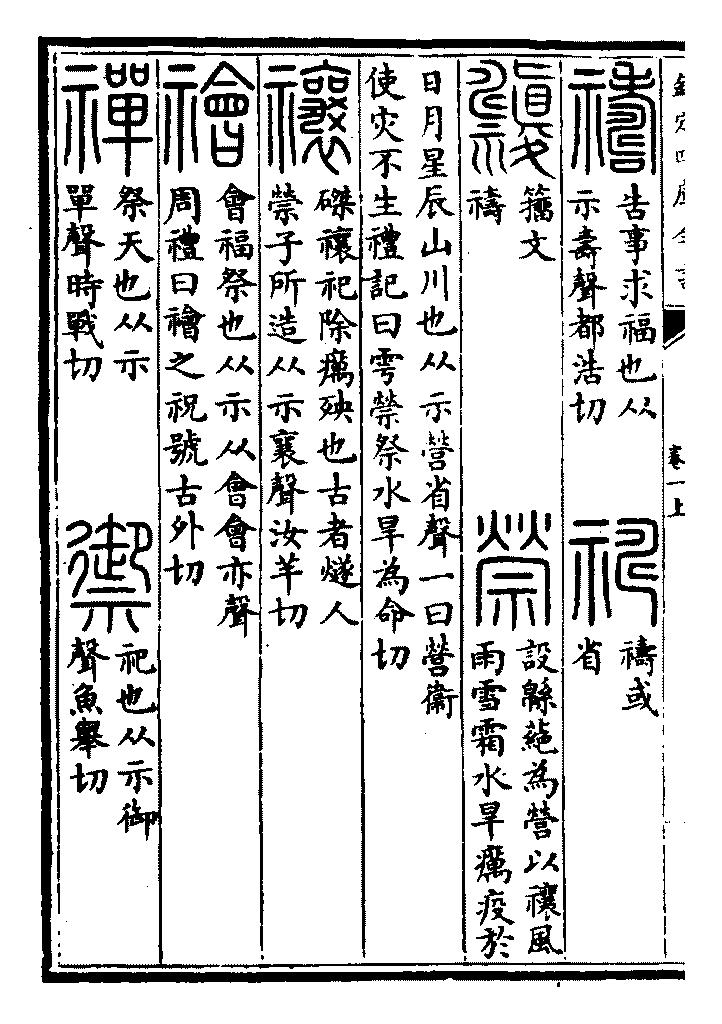 欽定四庫全書
卷一上
禱
告事求福也从
示壽聲都浩切
禱或
省
籒文
禱
禜
設緜蕝為營以禳風
雨雪霜水旱癘疫於
日月星辰山川也从示營省聲一曰營衛
使灾不生禮記曰雩禜祭水旱為命切
禳
磔禳祀除癘殃也古者燧人
禜子所造从示襄聲汝羊切
禬
會福祭也从示从會會亦聲
周禮曰禬之祝號古外切
禪
祭天也从示
單聲時戰切
禦
祀也从示御
聲魚舉切